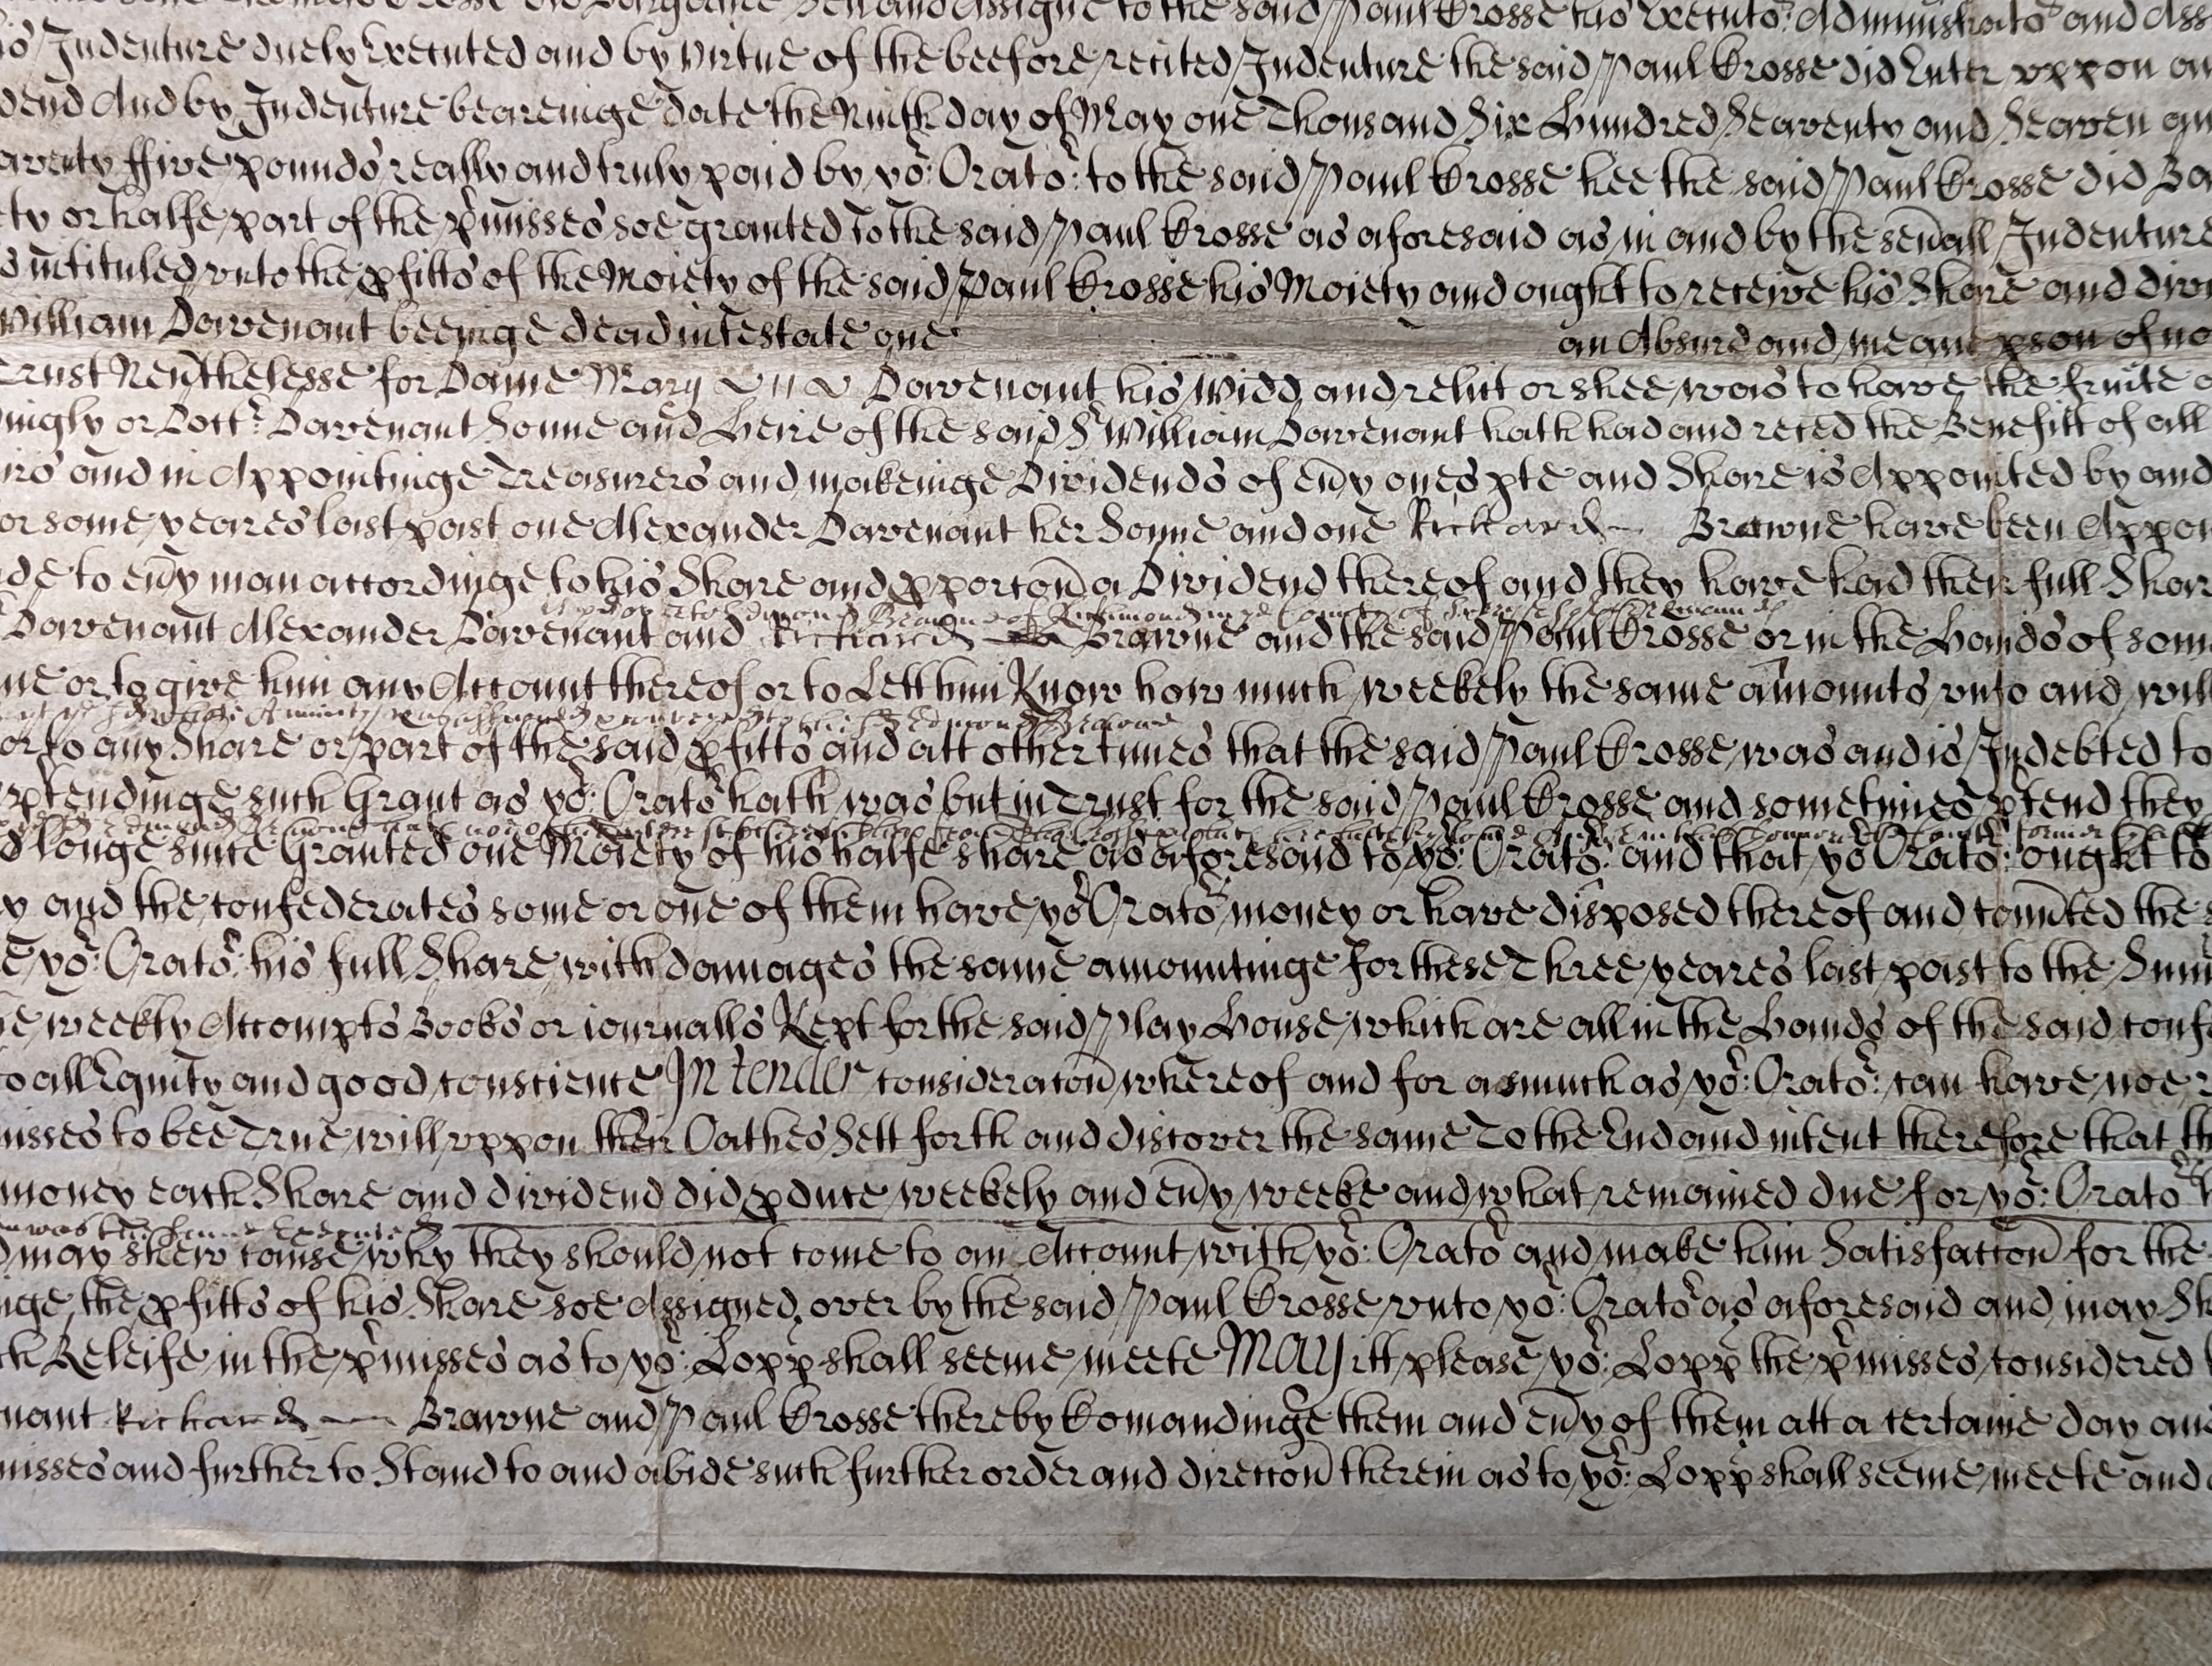 Bargaine Sell and Assigne to the said Paul Crosse his Executo:rs Administrato:rs and Ass
Indenture duely Executed and by virtue of the beefore recited Indenture the said Paul Crosse did Enter vppon an
dend And by Indenture beareinge date the Ninth day of May one Thousand Six Hundred Seaventy and Seaven
aventy ffive pounds really and truly paid by yo:r Orato:r to the said Paul Crosse hee the said Paul Crosse did Ba
ty or halfe part of the p̱misses soe granted To the said Paul Crosse as aforesaid as in and by the sev̄all Indenture
s intituled vnto the ꝓfitts of the Moiety of the said Paul Crosse his Moiety and ought to receive his Share and div
William Davenant beeinge dead intestate one an Absurd and meane ꝑson of no
Trust Nev̄thelesse for Dame Mary Davenant his Widd and relict or shee was to have the fruite o
ingly or Doct:r Davenant Sonne and Heire of the said S:r William Davenant hath had and reced the Benefitt of all
irs and in Appointinge Treasurers and makeinge Dividends of ev̄y ones ꝑte and Share is Appointed by and
or some yeares last past one Alexander Davenant her Sonne and one Richard Browne have been Appoi
ide to ev̄y man accordinge to his Share and ꝓporcōn a Dividend thereof and they have had their full Shar
of Richmond in
Davenant Alexander Davenant and Richard Browne and the said Paul Crosse or in the Hands of som
me or to give him any Account thereof or to Lett him Know how much weekely the same amounts vnto and wil
Edmond Browne
or to any Share or part of the said ꝓfitts and att other times that the said Paul Crosse was and is Indebted to
p̱tendinge such Grant as yo:r Orato:r hath was but in Trust for the said Paul Crosse and sometimes p̱tend they
d longe since Granted one Moiety of his halfe share as aforesaid to yo:r Orato:r and that yo:r Orato:r ought to
y and the confederates some or one of them have yo:r Orato:r money or have disposed thereof and conv̄ted the
e yo:r Orato:r his full Share with damages the same amountinge for these Three yeares last past to the Sum̄
e weekly Accompts Books or iournalls Kept for the said Play House which are all in the Hands of the said confe
to all Equity and good conscience In tender consideracōn whereof and for asmuch as yo:r Orato:r can have noe
misses to bee True will vppon their Oathes Sett forth and discover the same To the End and intent therefore that th
money each Share and dividend did ꝓduce weekely and ev̄y weeke and what remained due for yo:r Orato:r
may shew cause why they should not come to an Account with yo:r Orato:r and make him Satisfaccōn for the
nge the ꝓfitts of his Share soe Assigned over by the said Paul Crosse vnto yo:r Orato:r as aforesaid and may Sh
ch Releife in the p̱misses as to yo:r Lopp shall seeme meete May itt please yo:r Lopp the p̱misses considered
nant Richard Browne and Paul Crosse thereby Com̄andinge them and ev̄y of them att a certaine day and
misses and further to Stand to and abide such further order and direccōn therein as to yo:r Lopp shall seeme meete and